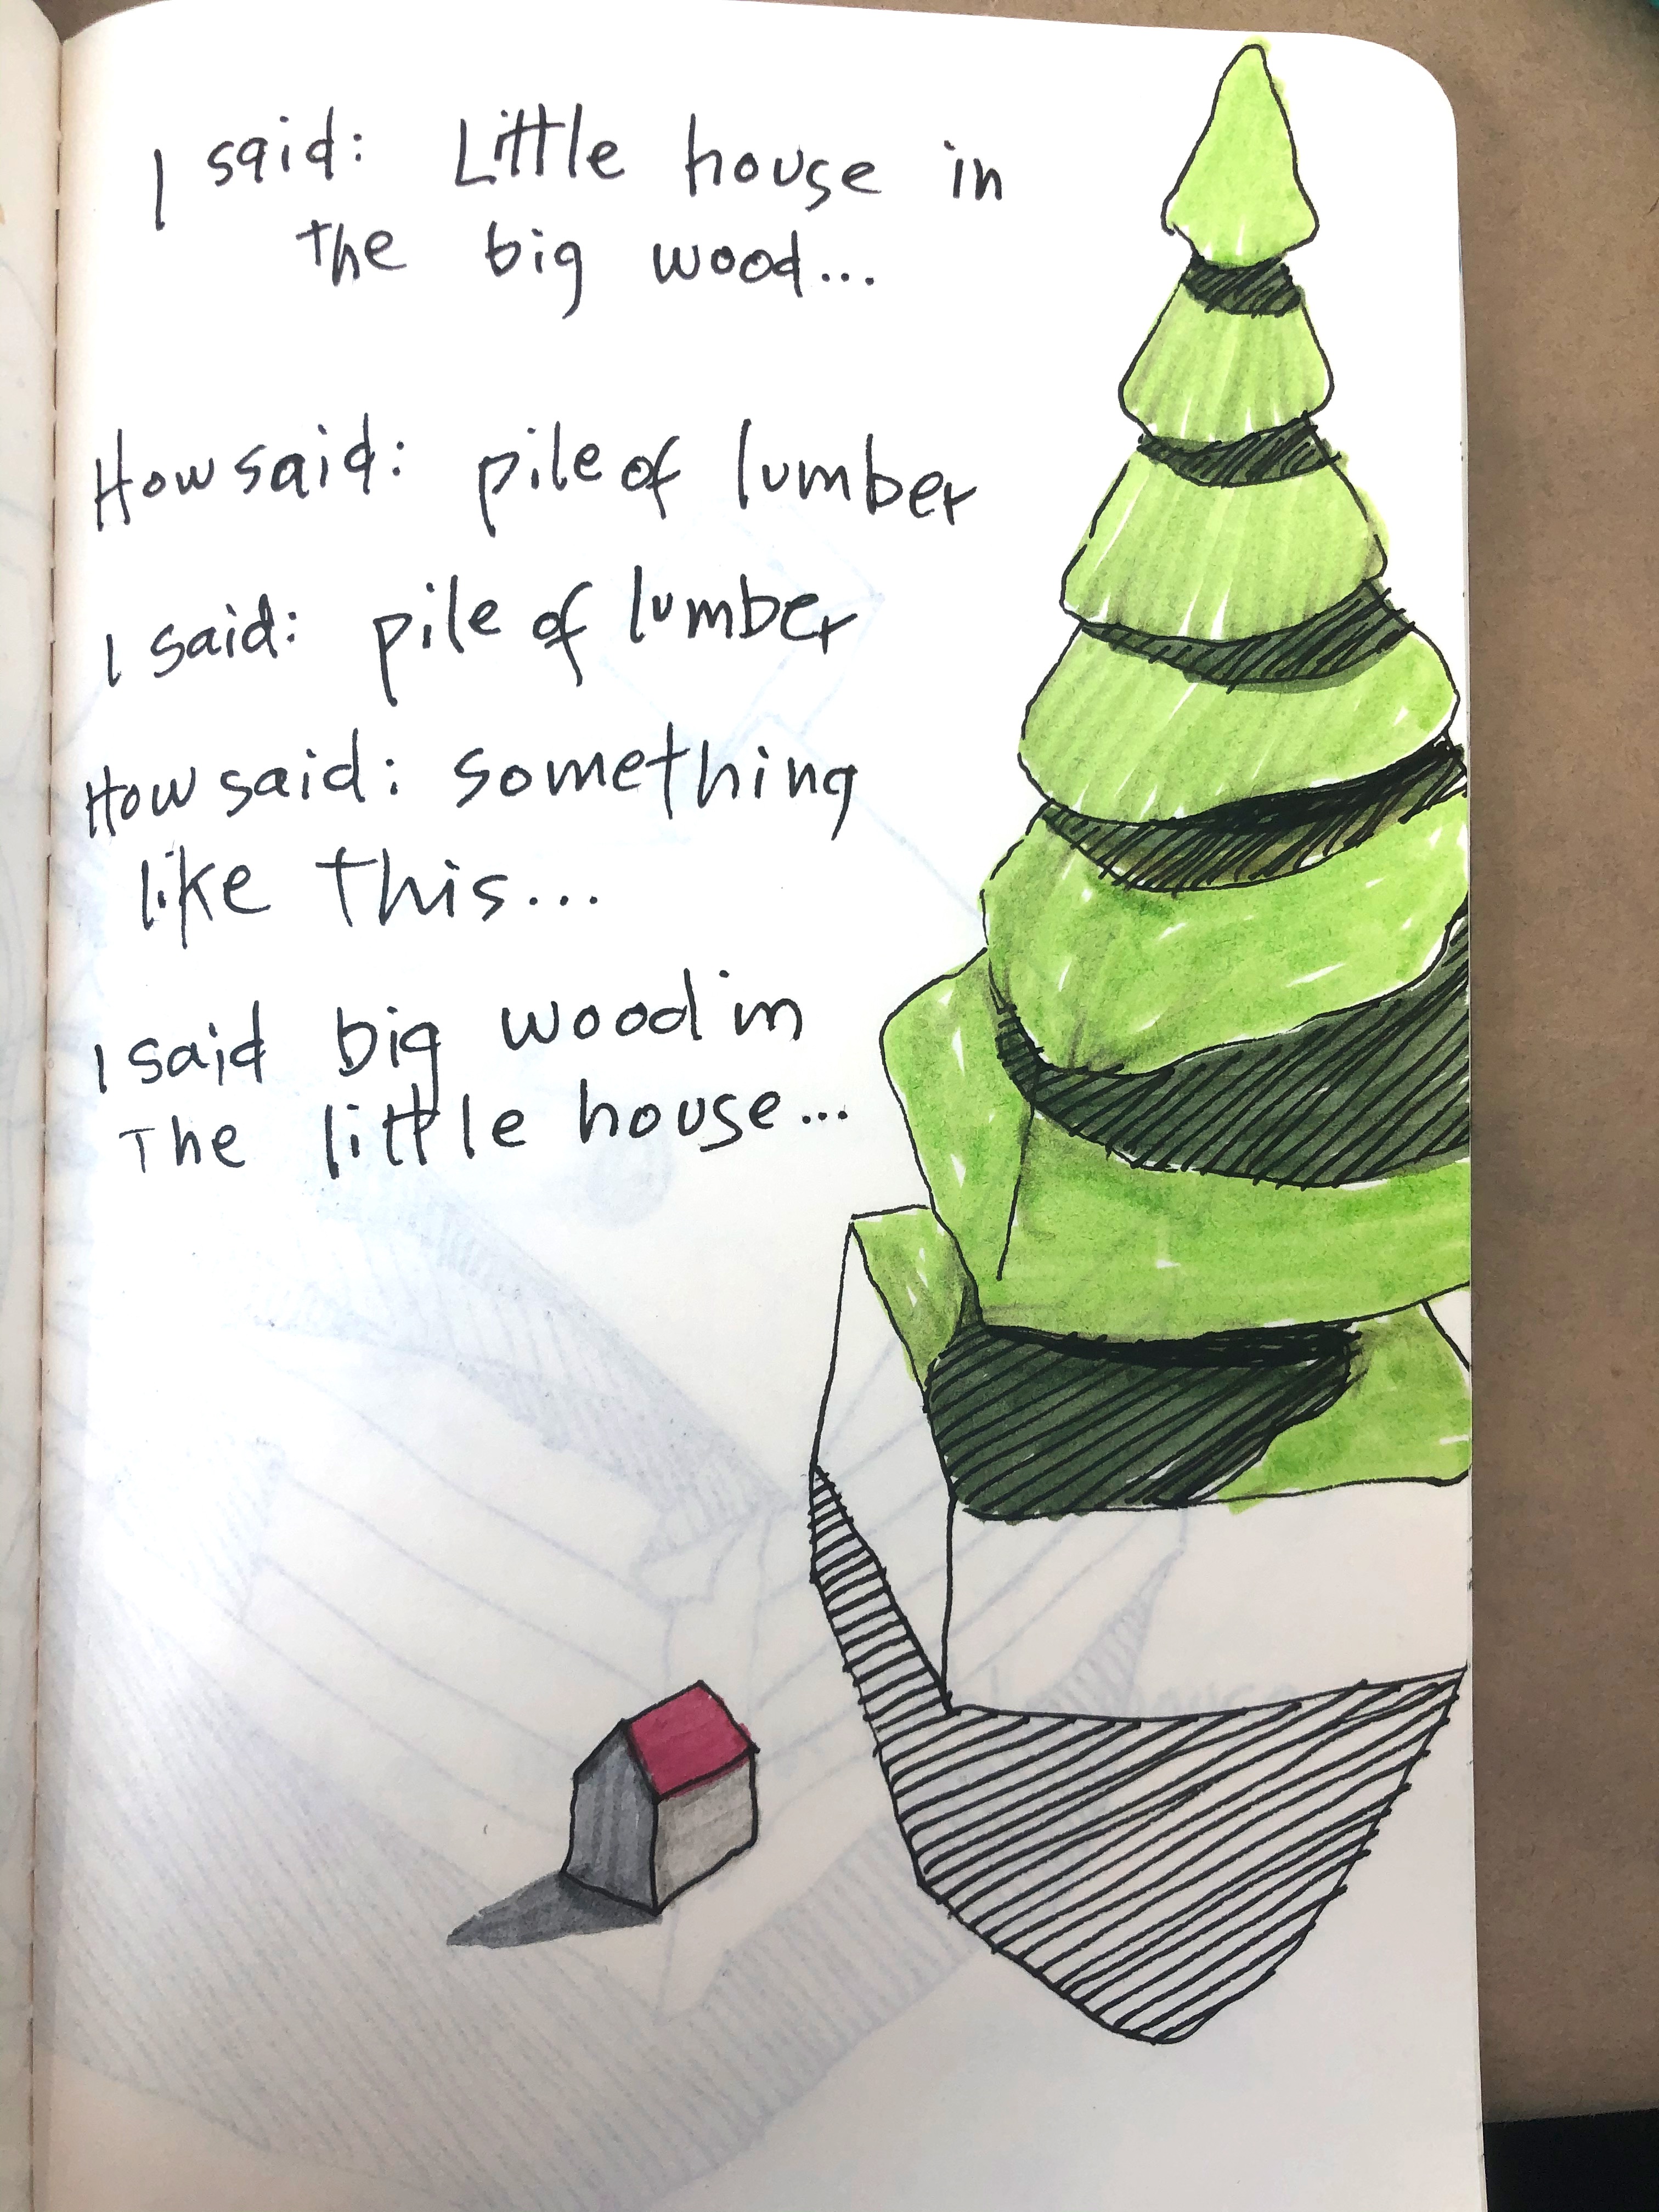 I said: Little house in
the big wood...
How said: pile of lumber
I said: pile of lumber
How said: something
like this...
I said big wood in
The little house...